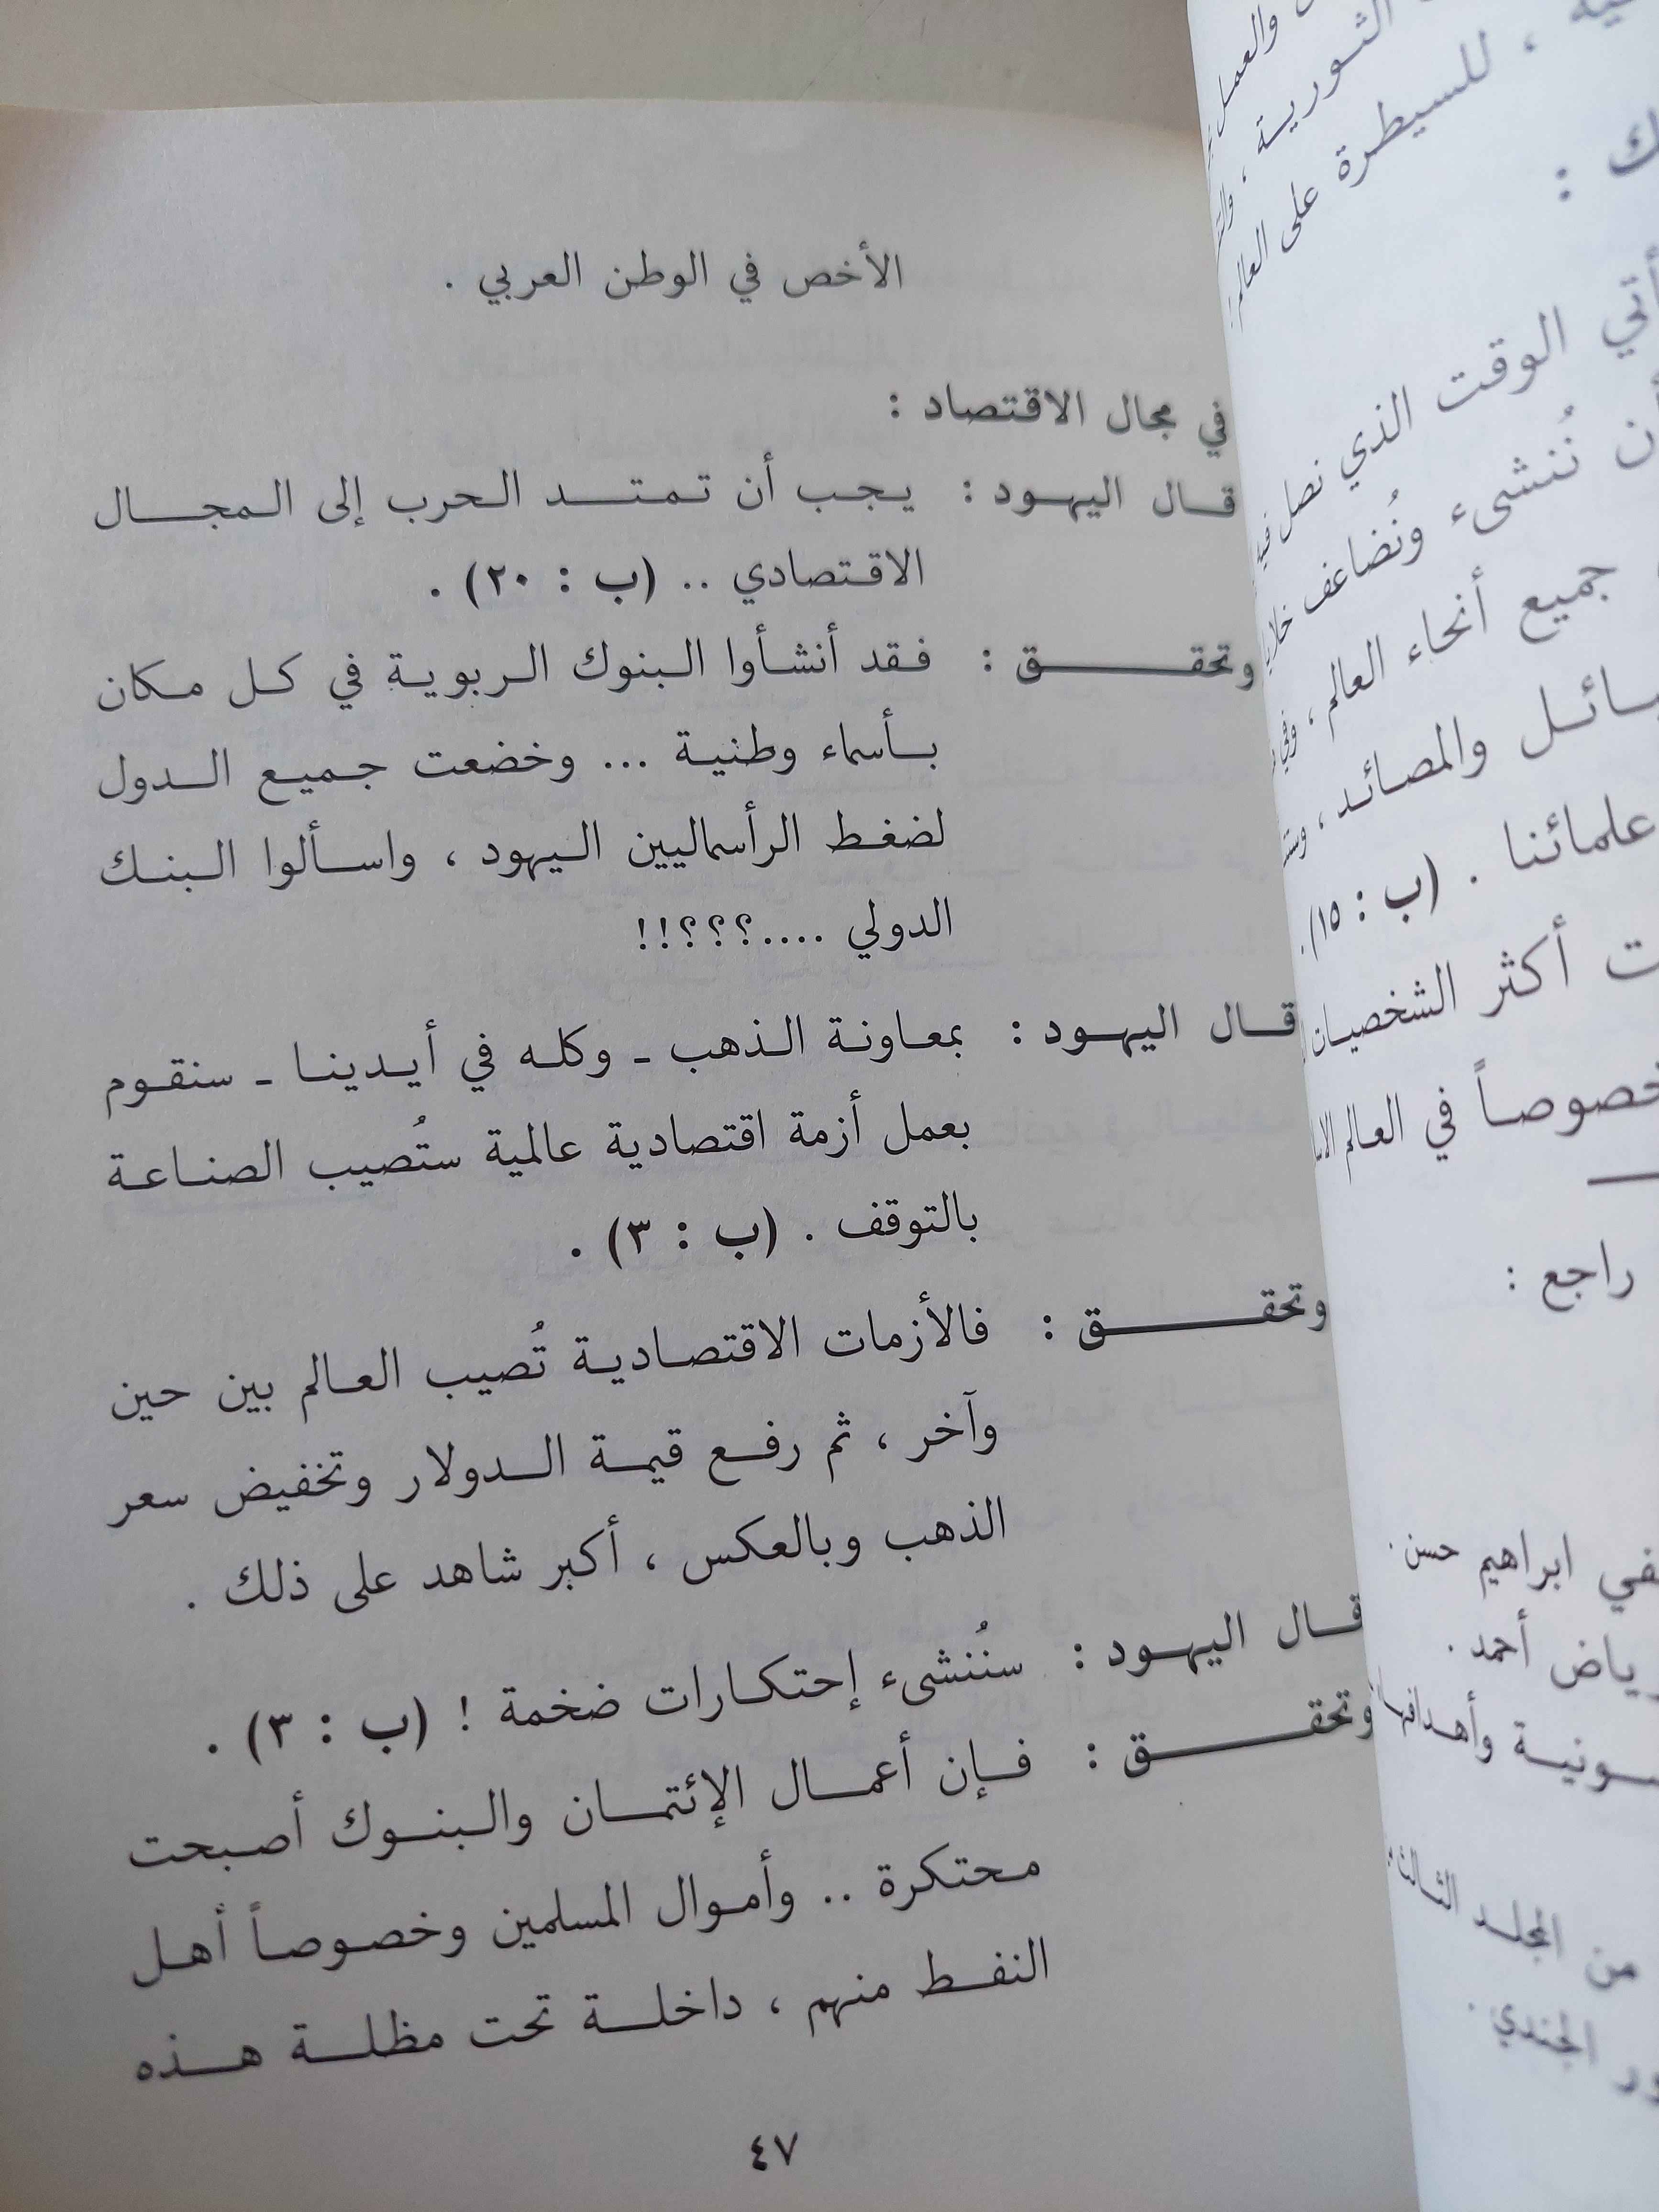 الأخص في الوطن العربي .
في مجال الاقتصاد :
قال اليهود : يجب أن تمتد الحرب إلى المجال
الاقتصادي .. (ب : ٢٠) .
وتحقق : فقد أنشأوا البنوك الربوية في كل مكان
بأسماء وطنية ... وخضعت جميع الدول
لضغط الرأسماليين اليهود ، واسألوا البنك
الدولي ....؟؟؟!!
قال اليهود : بمعاونة الذهب ـ وكله في أيدينا ـ سنقوم
بعمل أزمة اقتصادية عالمية ستُصيب الصناعة
بالتوقف . (ب : ٣) .
وتحقق : فالأزمات الاقتصادية تُصيب العالم بين حين
وآخر ، ثم رفع قيمة الدولار وتخفيض سعر
الذهب وبالعكس ، أكبر شاهد على ذلك .
قال اليهود : سنُنشىء إحتكارات ضخمة ! (ب : ٣) .
وتحقق : فإن أعمال الإئتمان والبنوك أصبحت
محتكرة .. وأموال المسلمين وخصوصاً أهل
النفط منهم ، داخلة تحت مظلة هذه
٤٧
والعمل
الثورية ،
، للسيطرة على العالم
ك :
الوقت الذي نصل فيه
نُنشىء ونُضاعف
جميع أنحاء العالم ،
والمصائد ،
علمائنا . (ب : ١٥).
أكثر الشخصيات
في العالم
راجع :
ابراهيم حسن .
أحمد .
وأهدافها
من المجلد الثالث
الجندي .